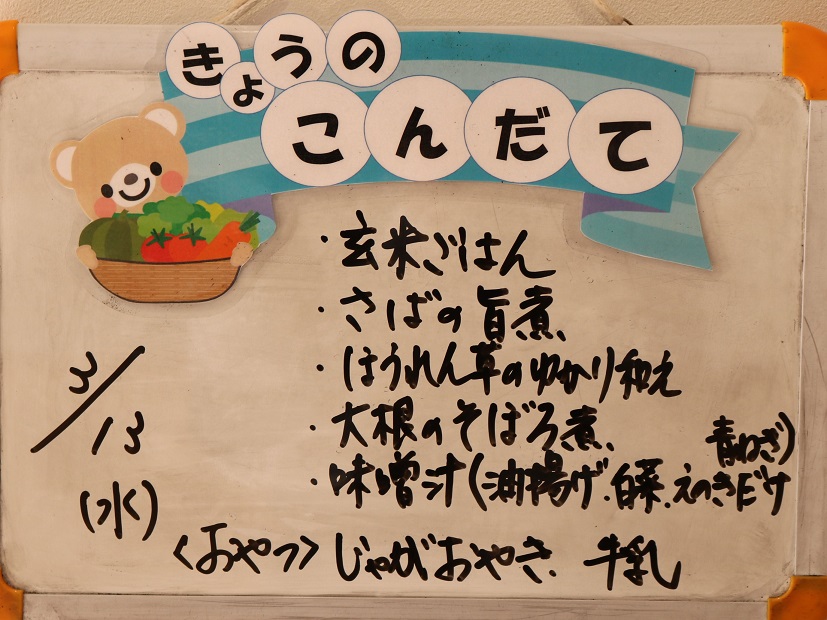 きょうの
こんだて
・玄米ごはん
・さばの旨煮
・ほうれん草のゆかり和え
・大根のそぼろ煮
・味噌汁(油揚げ.白菜.えのきだけ
青ねぎ)
3/13
(水)
<おやつ> じゃがおやき 牛乳